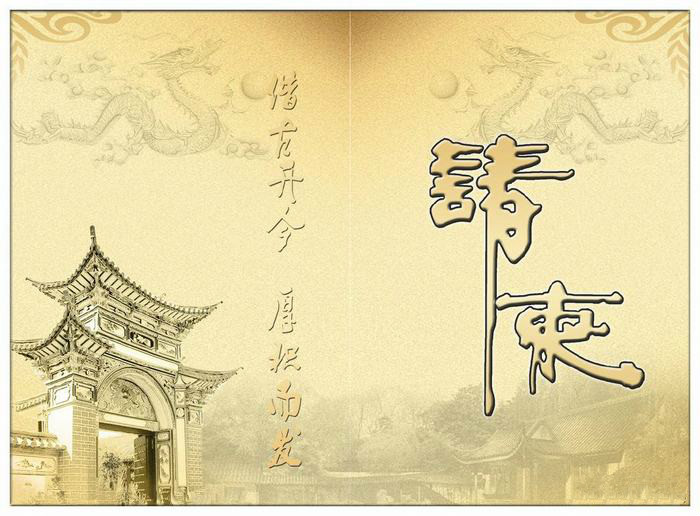 請柬
借古开今 厚积而发